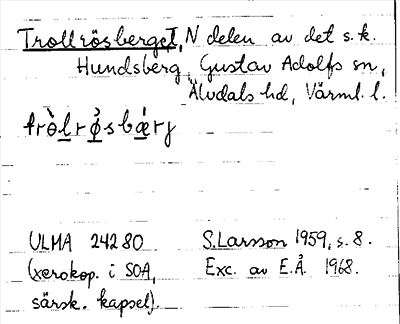 Trollrösberget, N delen av det s.k.
Hundsberg, Gustav Adolfs sn,
Älvdals hd, Värml. l.
tròlrø̉sbærj
ULMA 24280 S. Larsson 1959, s. 8.
(xerokop. i SOA, Exc. av E.Å. 1968.
särsk. kapsel).